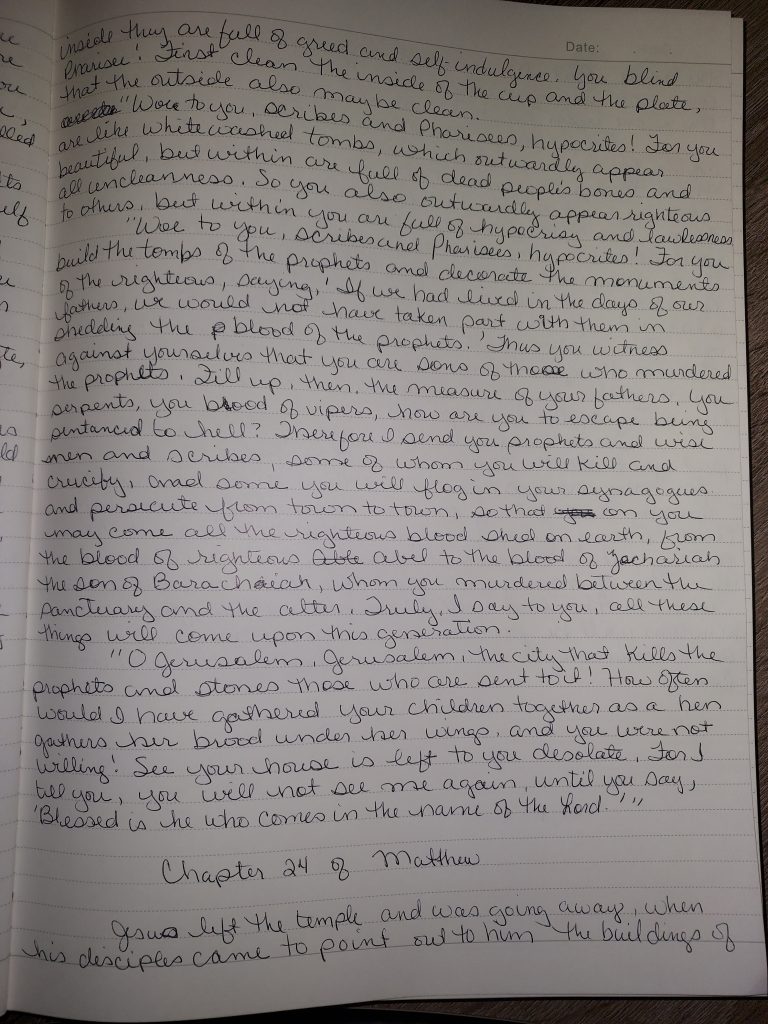 Date:
inside they are full of greed and self-indulgence. You blind
Pharisee! First clean the inside of the cup and the plate,
that the outside also may be clean.
"Woe to you, scribes and Pharisees, hypocrites! For you
are like whitewashed tombs, which outwardly appear
beautiful, but within are full of dead people's bones and
all uncleanness. So you also outwardly appear righteous
to others, but within you are full of hypocrisy and lawlessness
"Woe to you, scribes and Pharisees, hypocrites! For you
build the tombs of the prophets and decorate the monuments
of the righteous, saying, 'If we had lived in the days of our
fathers, we would not have taken part with them in
shedding the blood of the prophets.' Thus you witness
against yourselves that you are sons of those who murdered
the prophets. Fill up, then, the measure of your fathers. You
serpents, you brood of vipers, how are you to escape being
sentanced to hell? Therefore I send you prophets and wise
men and scribes, some of whom you will kill and
crucify, and some you will flog in your synagogues
and persecute from town to town, so that on you
may come all the righteous blood shed on earth, from
the blood of righteous abel to the blood of Zachariah
the son of Barachaiah, whom you murdered between the
sanctuary and the alter. Truly, I say to you, all these
things will come upon this generation.
"O Jerusalem, Jerusalem, the city that kills the
prophets and stones those who are sent to it! How often
would I have gathered your children together as a hen
gathers her brood under her wings, and you were not
willing! See your house is left to you desolate. For I
tell you, you will not see me again, until you say,
'Blessed is he who comes in the name of the Lord.'"
Chapter 24 of Matthew
Jesus left the temple and was going away, when
his disciples came to point out to him the buildings of